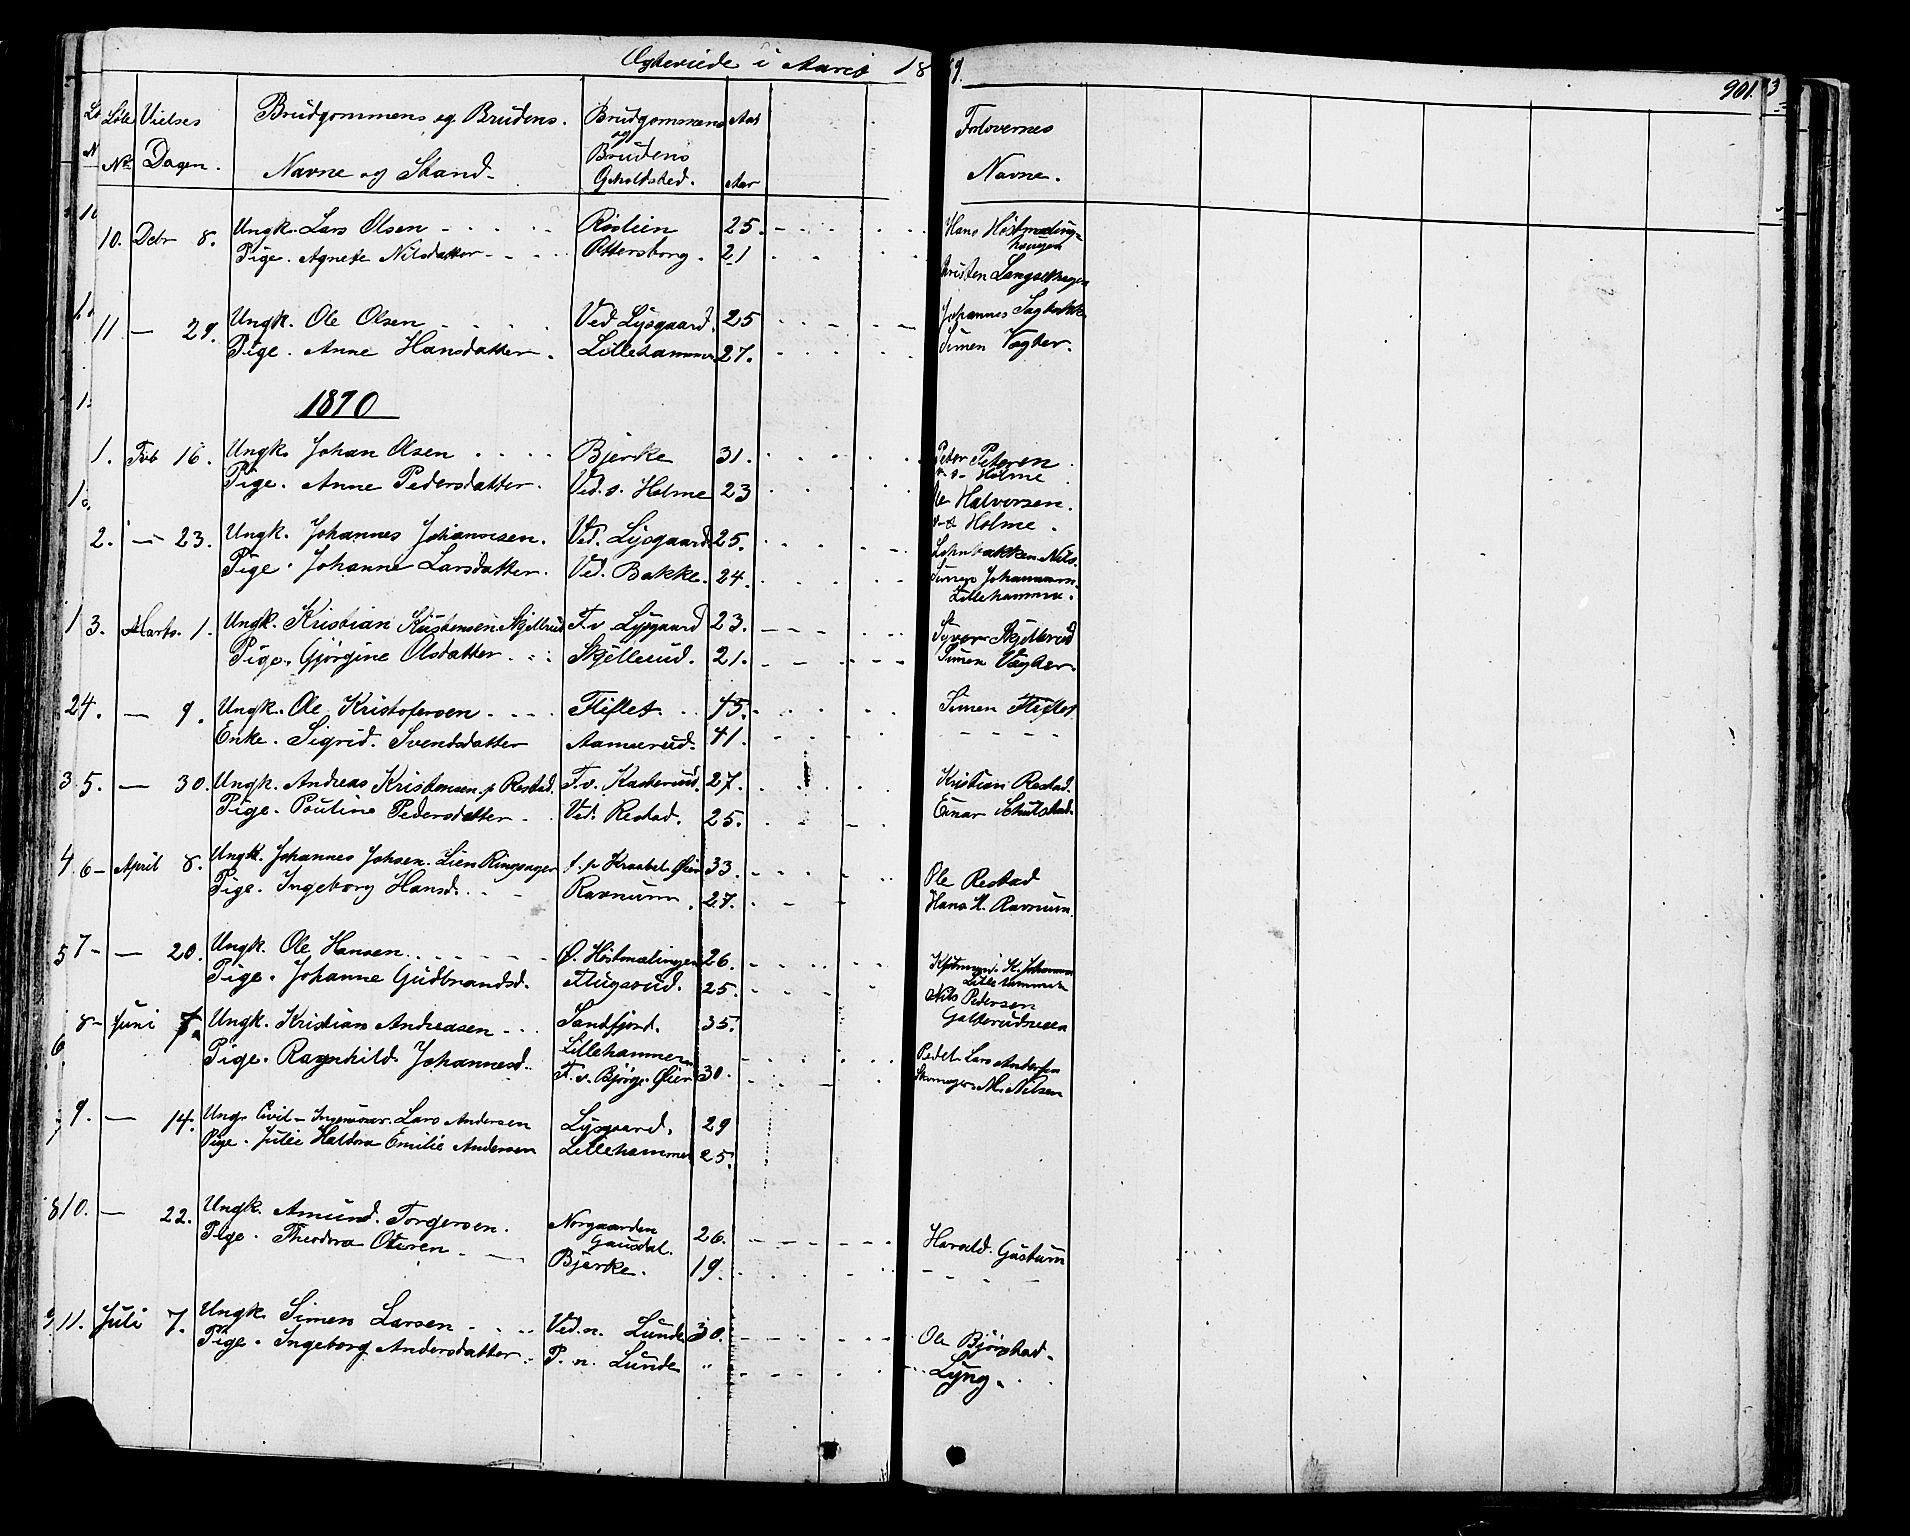 Ægteviede i Aaret 1869.
901.
Løbe Vielses Brudgommens og Brudens. Brudgommens Forlovernes
og
No Dagen. Navne og Stand. Brudens Navne.
Opholdsted. Aar
10. Debr 8. Ungk. Lars Olsen Røslien 25. Hans Høstmæling-
haugen
Pige. Agnete Nilsdatter Pttersborg. 21
Langsethagen
11 — 29. Ungk. Ole Olsen Ved Lysgaard. 25 Johannes
Pige. Anne Hansdatter. Lillehammer 27. Simen Vogter.
1870
1. Feb 16. Ungk. Johan Olsen Bjerke 31. Peter Petersen
Holme
Pige. Anne Pedersdatter. Ved. s. Holme 23 Halvorsen.
Holme.
2. — 23. Ungk. Johannes Johannesen. Ved. Lysgaard 25. Nils
Pige. Johanne Larsdatter. Ved. Bakke. 24. Johannesen.
Lillehammer.
3. Marts. 1. Ungk. Kristian Kristensen Skjellerud F. v. Lysgaard 23. Syver Skjellerud
Pige. Gjørgine Olsdatter. Skjellerud. 21. Simen Vogter.
4. — 9. Ungk. Ole Kristofersen Fliflet 45. Simen Fliflet
Enke. Sigrid. Svendsdatter Aamerud. 41.
5. — 30. Ungk. Andreas Kristensen p Restad. F. v. Kasterud. 27. Kristian Restad.
Pige. Pouline Pedersdatter Ved. Restad. 25. Einar Schulstad.
6 — April 8. Ungk. Johannes Johsen. Lien Ringsager f. p Kraabel. Øien 33. Ole Restad
Pige. Ingeborg Hansd. Ravnum. 27. Hans H. Ravnum.
7 — 20. Ungk. Ole Hansen. Ø. Høstmælingen 26.
Lillehammer
Pige. Johanne Gudbrandsd. Flugsrud. 25. Nils Pedersen
8 — Juni 7. Ungk. Kristian Andreasen Sandfjord. 35.
Lillehammer
Pige. Ragnhild. Johannesd. F. v. Bjørge. Øien 30. Lars Andersen
M. Nilsen
9. — 14. Ungk. Civil-Ingeniør. Lars Andersen Lysgaard. 29
Pige. Julie Haldora Emilie Andersen Lillehammer 25.
10. — 22. Ungk. Amund. Torgersen. Norgaarden
Gausdal. 26. Harald. Gustum
Pige. Theodora Olsen Bjerke. 19.
11. Juli 7. Ungk. Simen Larsen Ved. n. Lunde 30. Ole Bjørnstad
Pige. Ingeborg Andersdatter. P. n. Lunde „ Lyng.